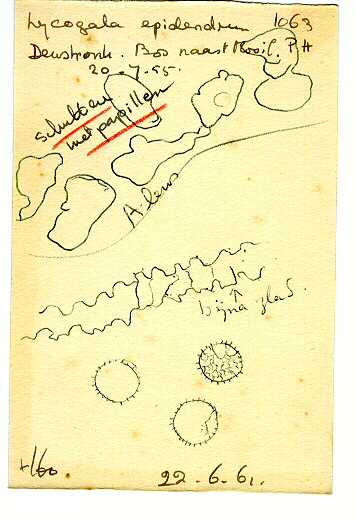 Lycogala epidendrum 1063
Denstronk. Bos naast Kooil. PH
20.7.55.
schubben
met papillen
A-lens
bijna glad.
+160
22.6.61.